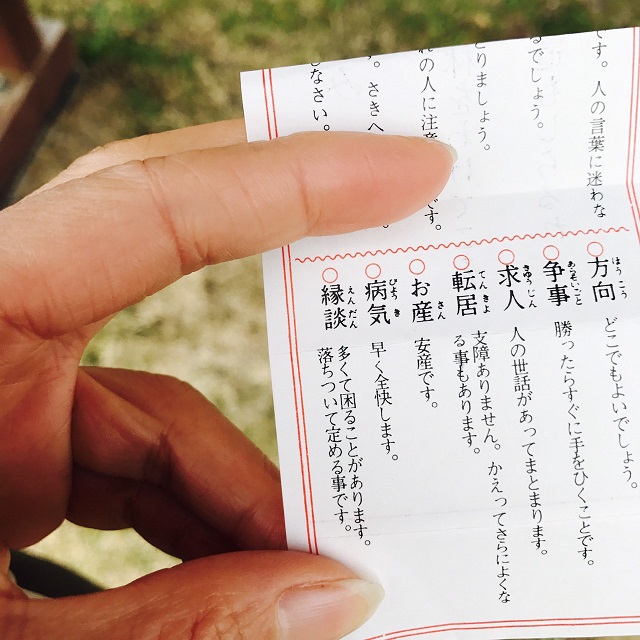 です。人の言葉に迷わな
るでしょう。
とりましょう。
れの人に注意 です。
す。さきへ
しなさい。
方向 どこでもよいでしょう。
ほうこう
争事 勝ったらすぐに手をひくことです。
あらそいごと
求人 人の世話があってまとまります。
きゅうじん
転居 支障ありません。かえってさらによくな
てんきょ
る事もあります。
お産 安産です。
さん
病気 早く全快します。
びょうき
縁談 多くて困ることがあります。
えんだん
落ちついて定める事です。